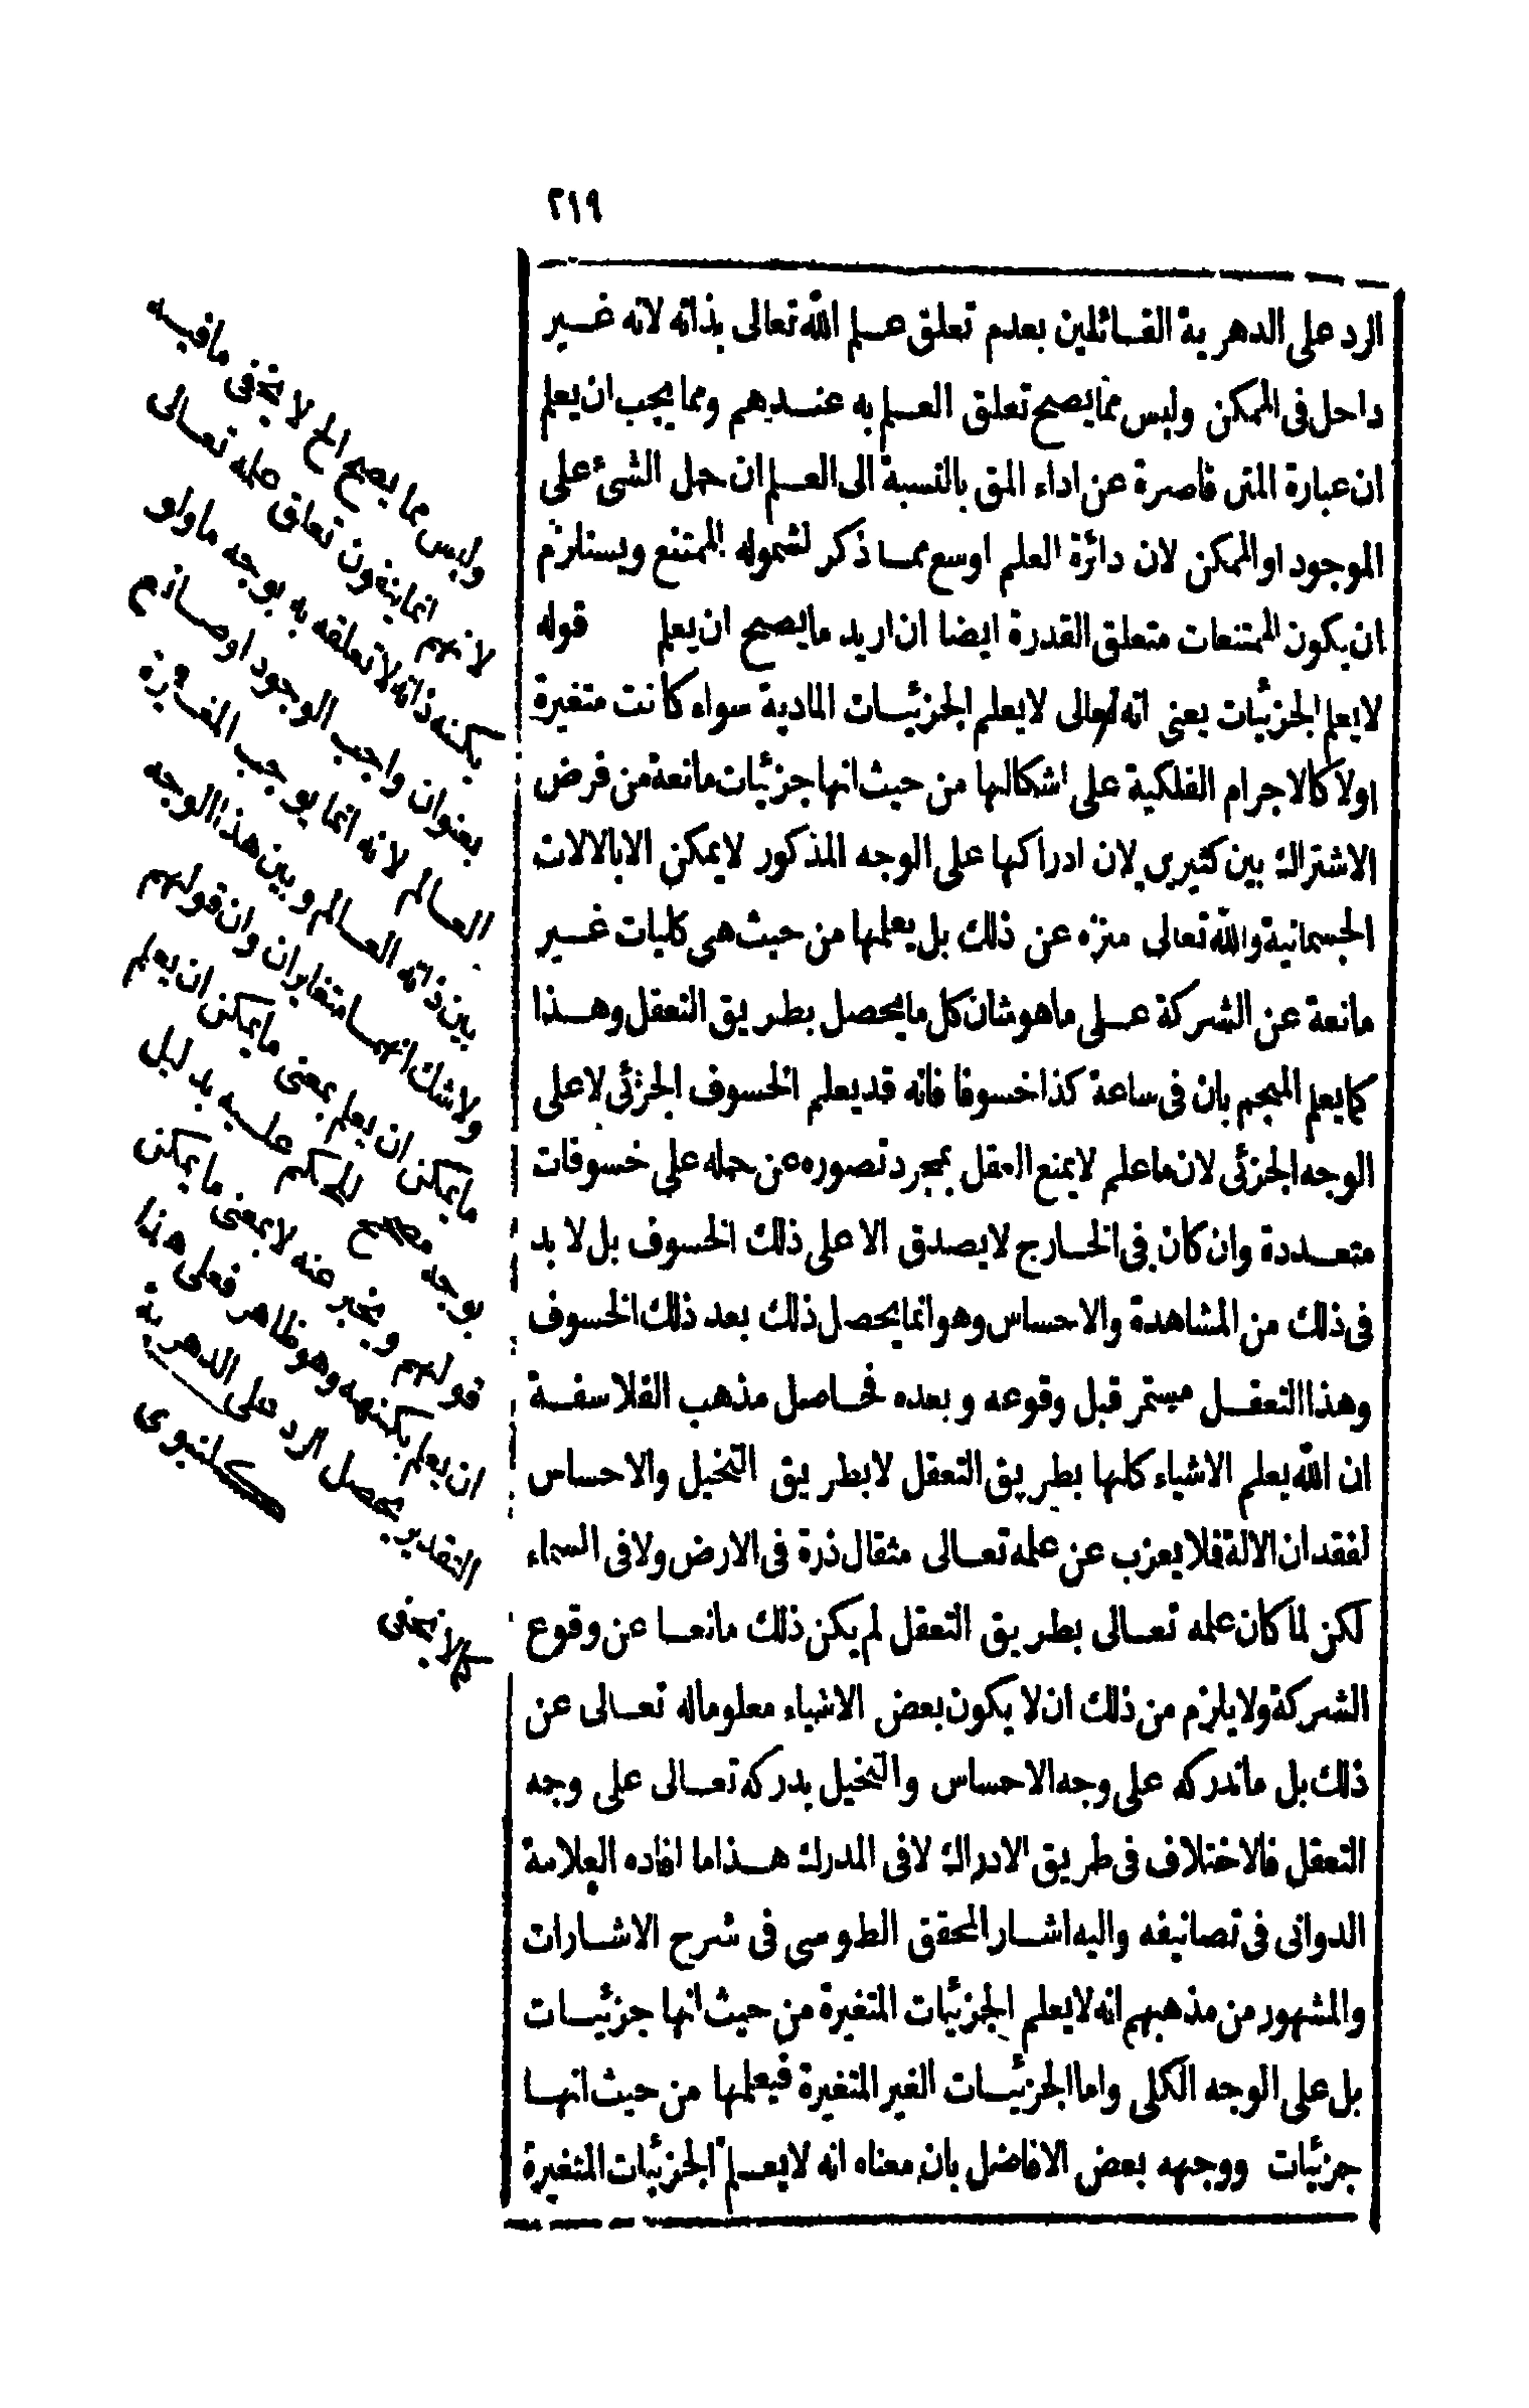 ٢١٩
الرد على الدهرية القائلين بعدم تعلق علم الله تعالى بذاته لانه غير
داخل فى الممكن وليس مما يصح تعلق العلم به عندهم ومما يجب ان يعلم
ان عبارة المتن قاصرة عن اداء المق بالنسبة الى العلم ان حمل الشئ على
الموجود او الممكن لان دائرة العلم اوسع مما ذكر لشموله الممتنع ويستلزم
ان يكون الممتنعات متعلق القدرة ايضا ان اريد ما يصح ان يعلم قوله
لا يعلم الجزئيات يعنى انه تعالى لا يعلم الجزئيات المادية سواء كانت متغيرة
اولا كالاجرام الفلكية على اشكالها من حيث انها جزئيات مانعة من فرض
الاشتراك بين كثيرين لان ادراكها على الوجه المذكور لا يمكن الا بالالات
الجسمانية والله تعالى منزه عن ذلك بل يعلمها من حيث هى كليات غير
مانعة عن الشركة على ما هو شان كل ما يحصل بطريق التعقل وهذا
كما يعلم المنجم بان فى ساعة كذا خسوفا فانه قد يعلم الخسوف الجزئى لا على
الوجه الجزئى لان ما علم لا يمنع العقل بمجرد تصوره عن حمله على خسوفات
متعددة وان كان فى الخارج لا يصدق الا على ذلك الخسوف بل لا بد
فى ذلك من المشاهدة والاحساس وهو انما يحصل ذلك بعد ذلك الخسوف
وهذا التعقل مستمر قبل وقوعه وبعده فحاصل مذهب الفلاسفة
ان الله يعلم الاشياء كلها بطريق التعقل لا بطريق التخيل والاحساس
لفقدان الالة فلا يعزب عن علمه تعالى مثقال ذرة فى الارض ولا فى السماء
لكن لما كان علمه تعالى بطريق التعقل لم يكن ذلك مانعا عن وقوع
الشركة ولا يلزم من ذلك ان لا يكون بعض الاشياء معلوما له تعالى عن
ذلك بل ما ندركه على وجه الاحساس والتخيل يدركه تعالى على وجه
التعقل فالاختلاف فى طريق الادراك لا فى المدرك هذا ما افاده العلامة
الدوانى فى تصانيفه واليه اشار المحقق الطوسى فى شرح الاشارات
والمشهور من مذهبهم انه لا يعلم الجزئيات المتغيرة من حيث انها جزئيات
بل على الوجه الكلى واما الجزئيات الغير المتغيرة فيعلمها من حيث انها
جزئيات ووجهه بعض الافاضل بان معناه انه لا يعلم الجزئيات المتغيرة
وليس مما يصح الخ لا يخفى ما فيه
لانهم انما ينفون تعلق علمه تعالى
بكنه ذاته لا تعلقه به بوجه ما ولو
بعنوان واجب الوجود او صانع
العالم لانه انما يوجب المغايرة
بين ذاته العالم وبين هذا الوجه
ولا شك انهما متغايران وان قولهم
ما يمكن ان يعلم بمعنى ما يمكن ان يعلم
بوجه مصحح للحكم عليه بدليل
قولهم ويخبر عنه لا بمعنى ما يمكن
ان يعلم بكنهه وهو ظاهر فعلى هذا
التقدير يحصل الرد على الدهرية
كما لا يخفى
كلنبوى